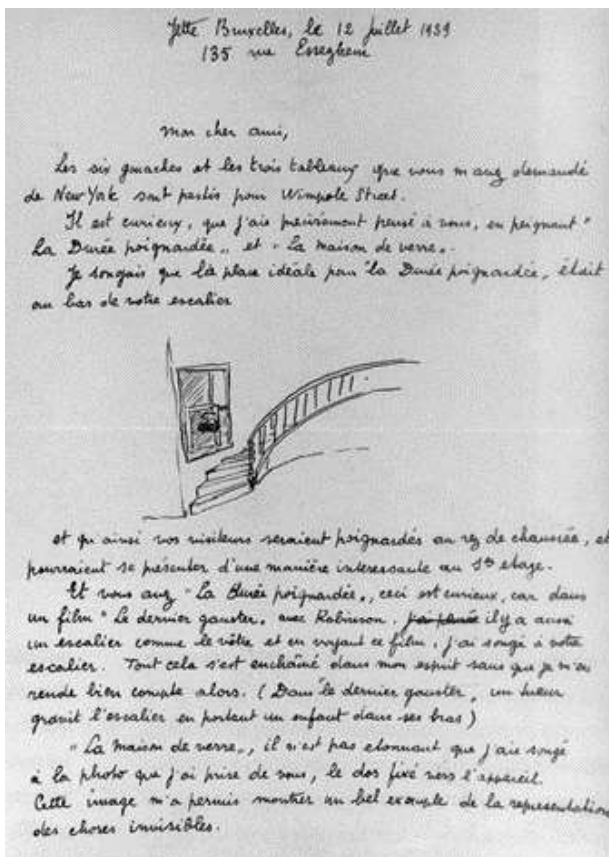 Jette Bruxelles, le 12 juillet 1939
135 rue Esseghem
Mon cher ami,
Les six gouaches et les trois tableaux que vous m'avez demandé
de New York sont partis pour Wimpole Street.
Il est curieux, que j'aie précisément pensé à vous, en peignant "
La Durée poignardée" et "La maison de verre".
Je songais que la place idéale pour "la Durée poignardée, était
au bas de votre escalier
et qu'ainsi vos visiteurs seraient poignardés au rez de chaussée, et
pourraient se présenter d'une manière interessante au 1er etage.
Et vous avez "La Durée poignardée", ceci est curieux, car dans
un film "Le dernier gangster" avec Robinson, il y a aussi
un escalier comme le vôtre et en voyant ce film, j'ai songé à votre
escalier. Tout cela s'est enchaîné dans mon esprit sans que je m'en
rende bien compte alors. (Dans le dernier gangster, un tueur
gravit l'escalier en portant un enfant dans ses bras)
"La maison de verre", il n'est pas etonnant que j'aie songé
à la photo que j'ai prise de vous, le dos fixé vers l'appareil.
Cette image m'a permis montrer un bel exemple de la representation
des choses invisibles.